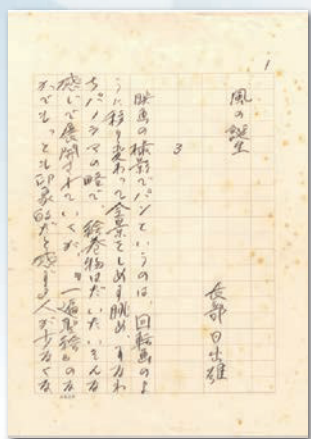 1
風の誕生
長部日出雄
3
映画の撮影でパンというのは、回転画のよ
うに移り変わって全景をしめす眺め、すなわ
ちパノラマの略で、絵巻物はだいたいそんな
感じで展開されていくが、『一遍聖絵』のな
かでもっとも印象的だと感ずる人が少なくな